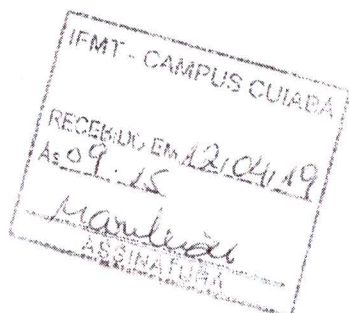 IFMT - CAMPUS CUIABÁ
RECEBIDO EM 12/04/19
Às 09:15
ASSINATURA